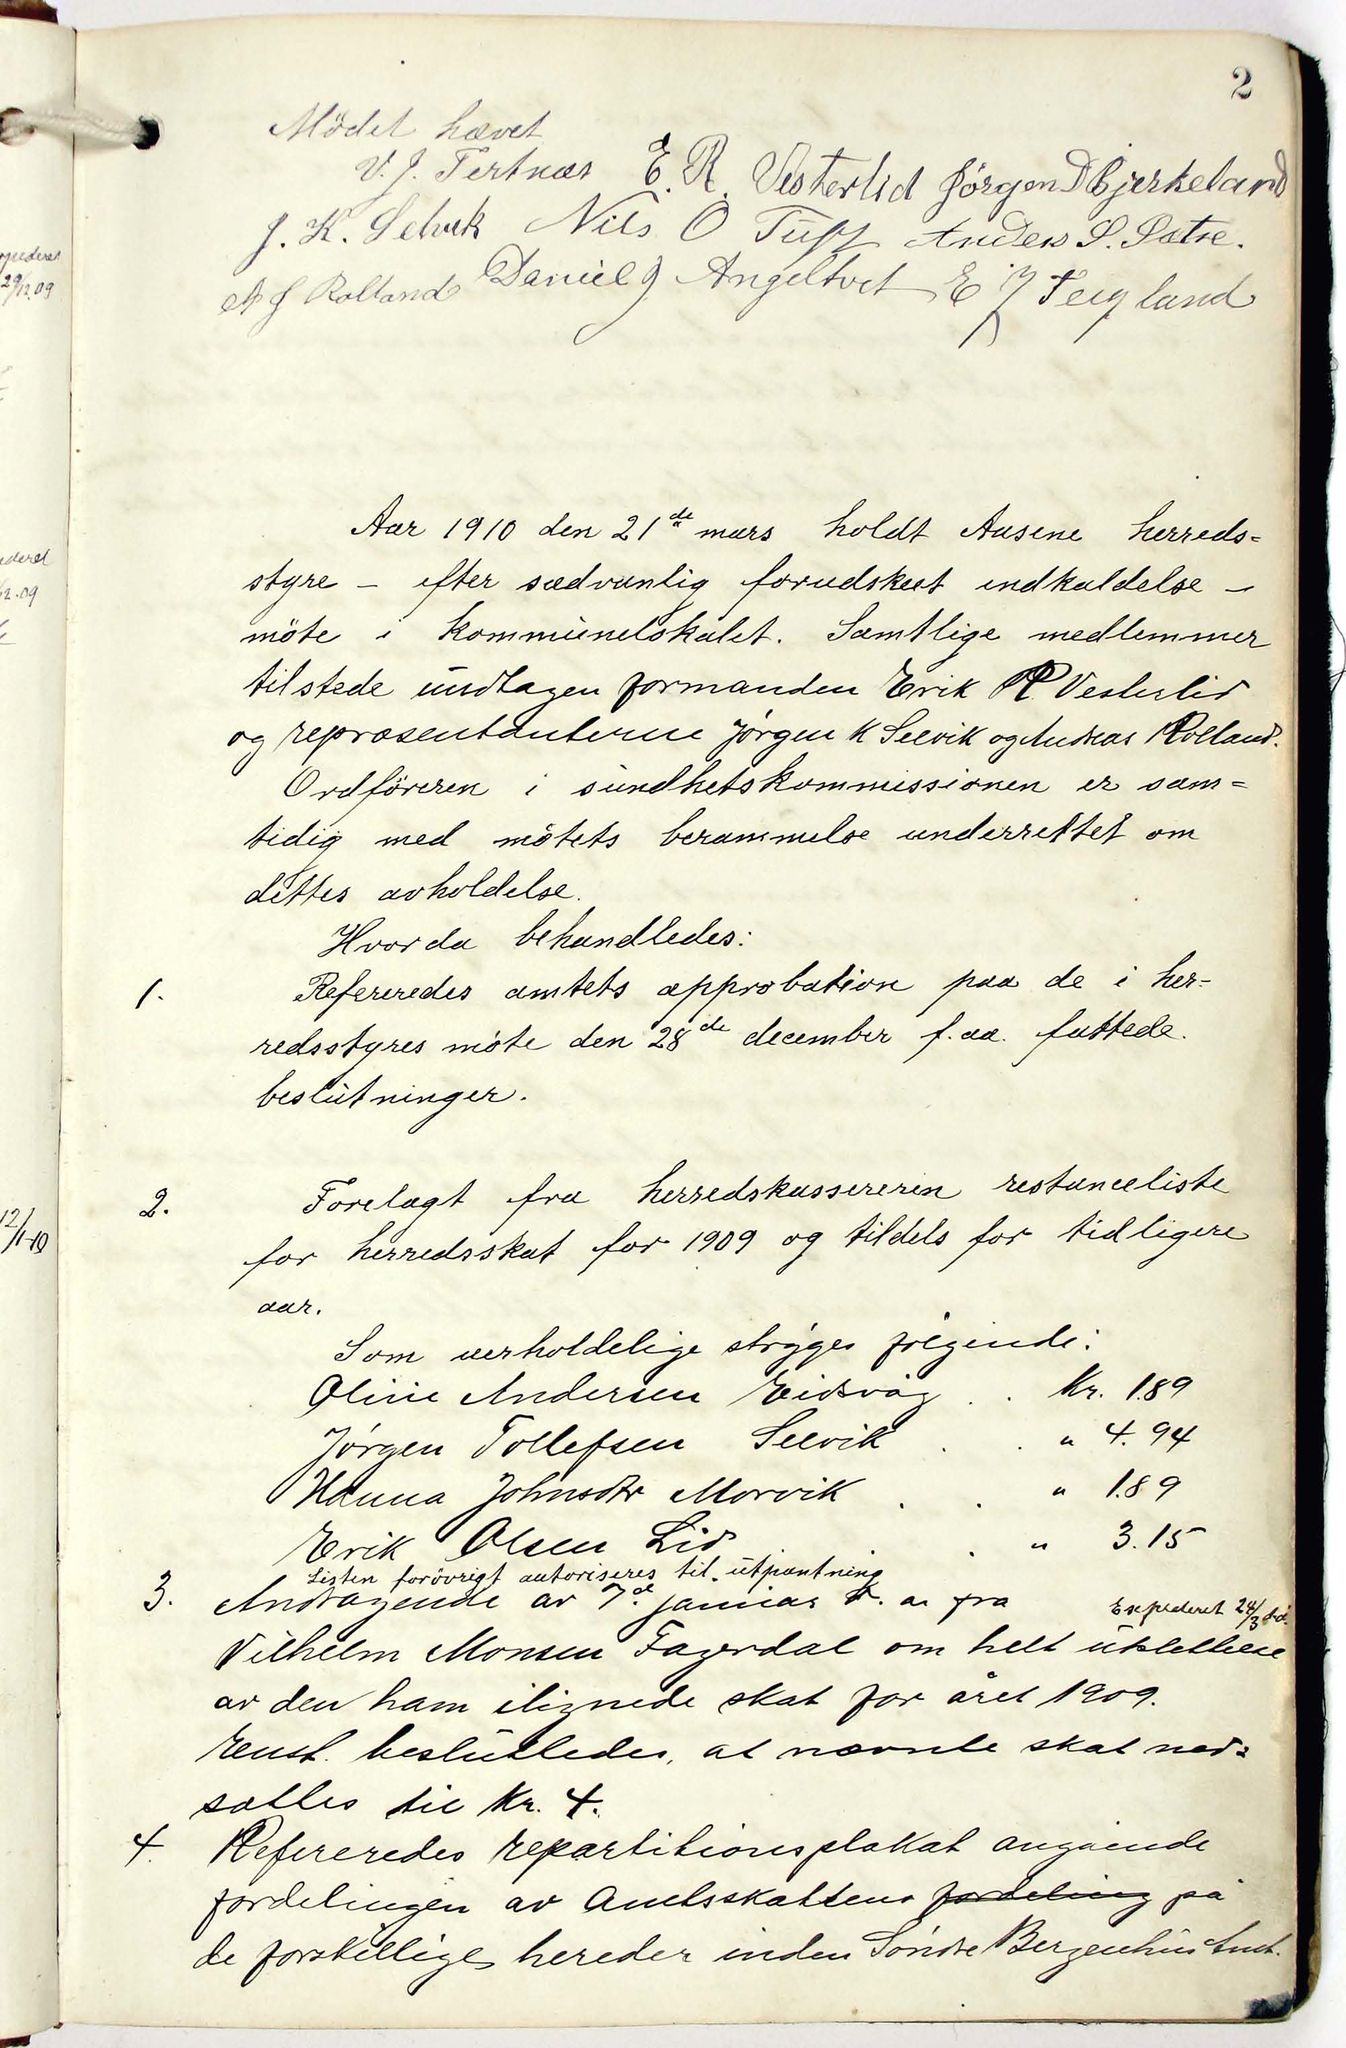 2
Mödet hævet
V. J. Tertnæs E. R. Vesterlid Jörgen D Bjerkeland
J. K. Selvik Nils O Tuft Anders S. Sætre.
A J Rolland Daniel J Angeltvet E J Teigland
29/12 09
12.09
12/1-10
Aar 1910 den 21de mars holdt Aasene herreds=
styre – efter sædvanlig forudskeet indkaldelse –
möte i kommunelokalet. Samtlige medlemmer
tilstede undtagen formanden Erik R Vesterlid
og repræsentanterne Jørgen K Seevik og Andreas Rolland.
Ordföreren i sundhetskommissionen er sam=
tidig med mötets berammelse underrettet om
dettes avholdelse.
Hvorda behandledes:
1. Refereredes amtets approbation paa de i her-
redsstyres möte den 28de december f. aa. fattede
beslutninger.
2. Forelagt fra herredskassereren restanceliste
for herredsskat for 1909 og tildels for tidligere
aar.
Som uerholdelige stryges følgende:
Oline Andersen Eidsvåg . . Kr. 1.89
Jørgen Tollefsen Seevik . . " 4.94
Hanna Johnsdtr Morvik . . " 1.89
Erik Olsen Lid . . " 3.15
Listen forövrigt autoriseres til utpantning
3. Andragende av 7de januar d. a. fra Expederet 24/3
Vilhelm Monsen Fagerdal om helt utslettelse
av den ham ilignede skat for året 1909.
Enst. besluttedes, at nævnte skat ned=
sattes til Kr. 4.
4. Refereredes repartitionsplakat angående
fordelingen av Amtsskattens fordeling på
de forskillige hereder inden Söndre Bergenhus Amt.